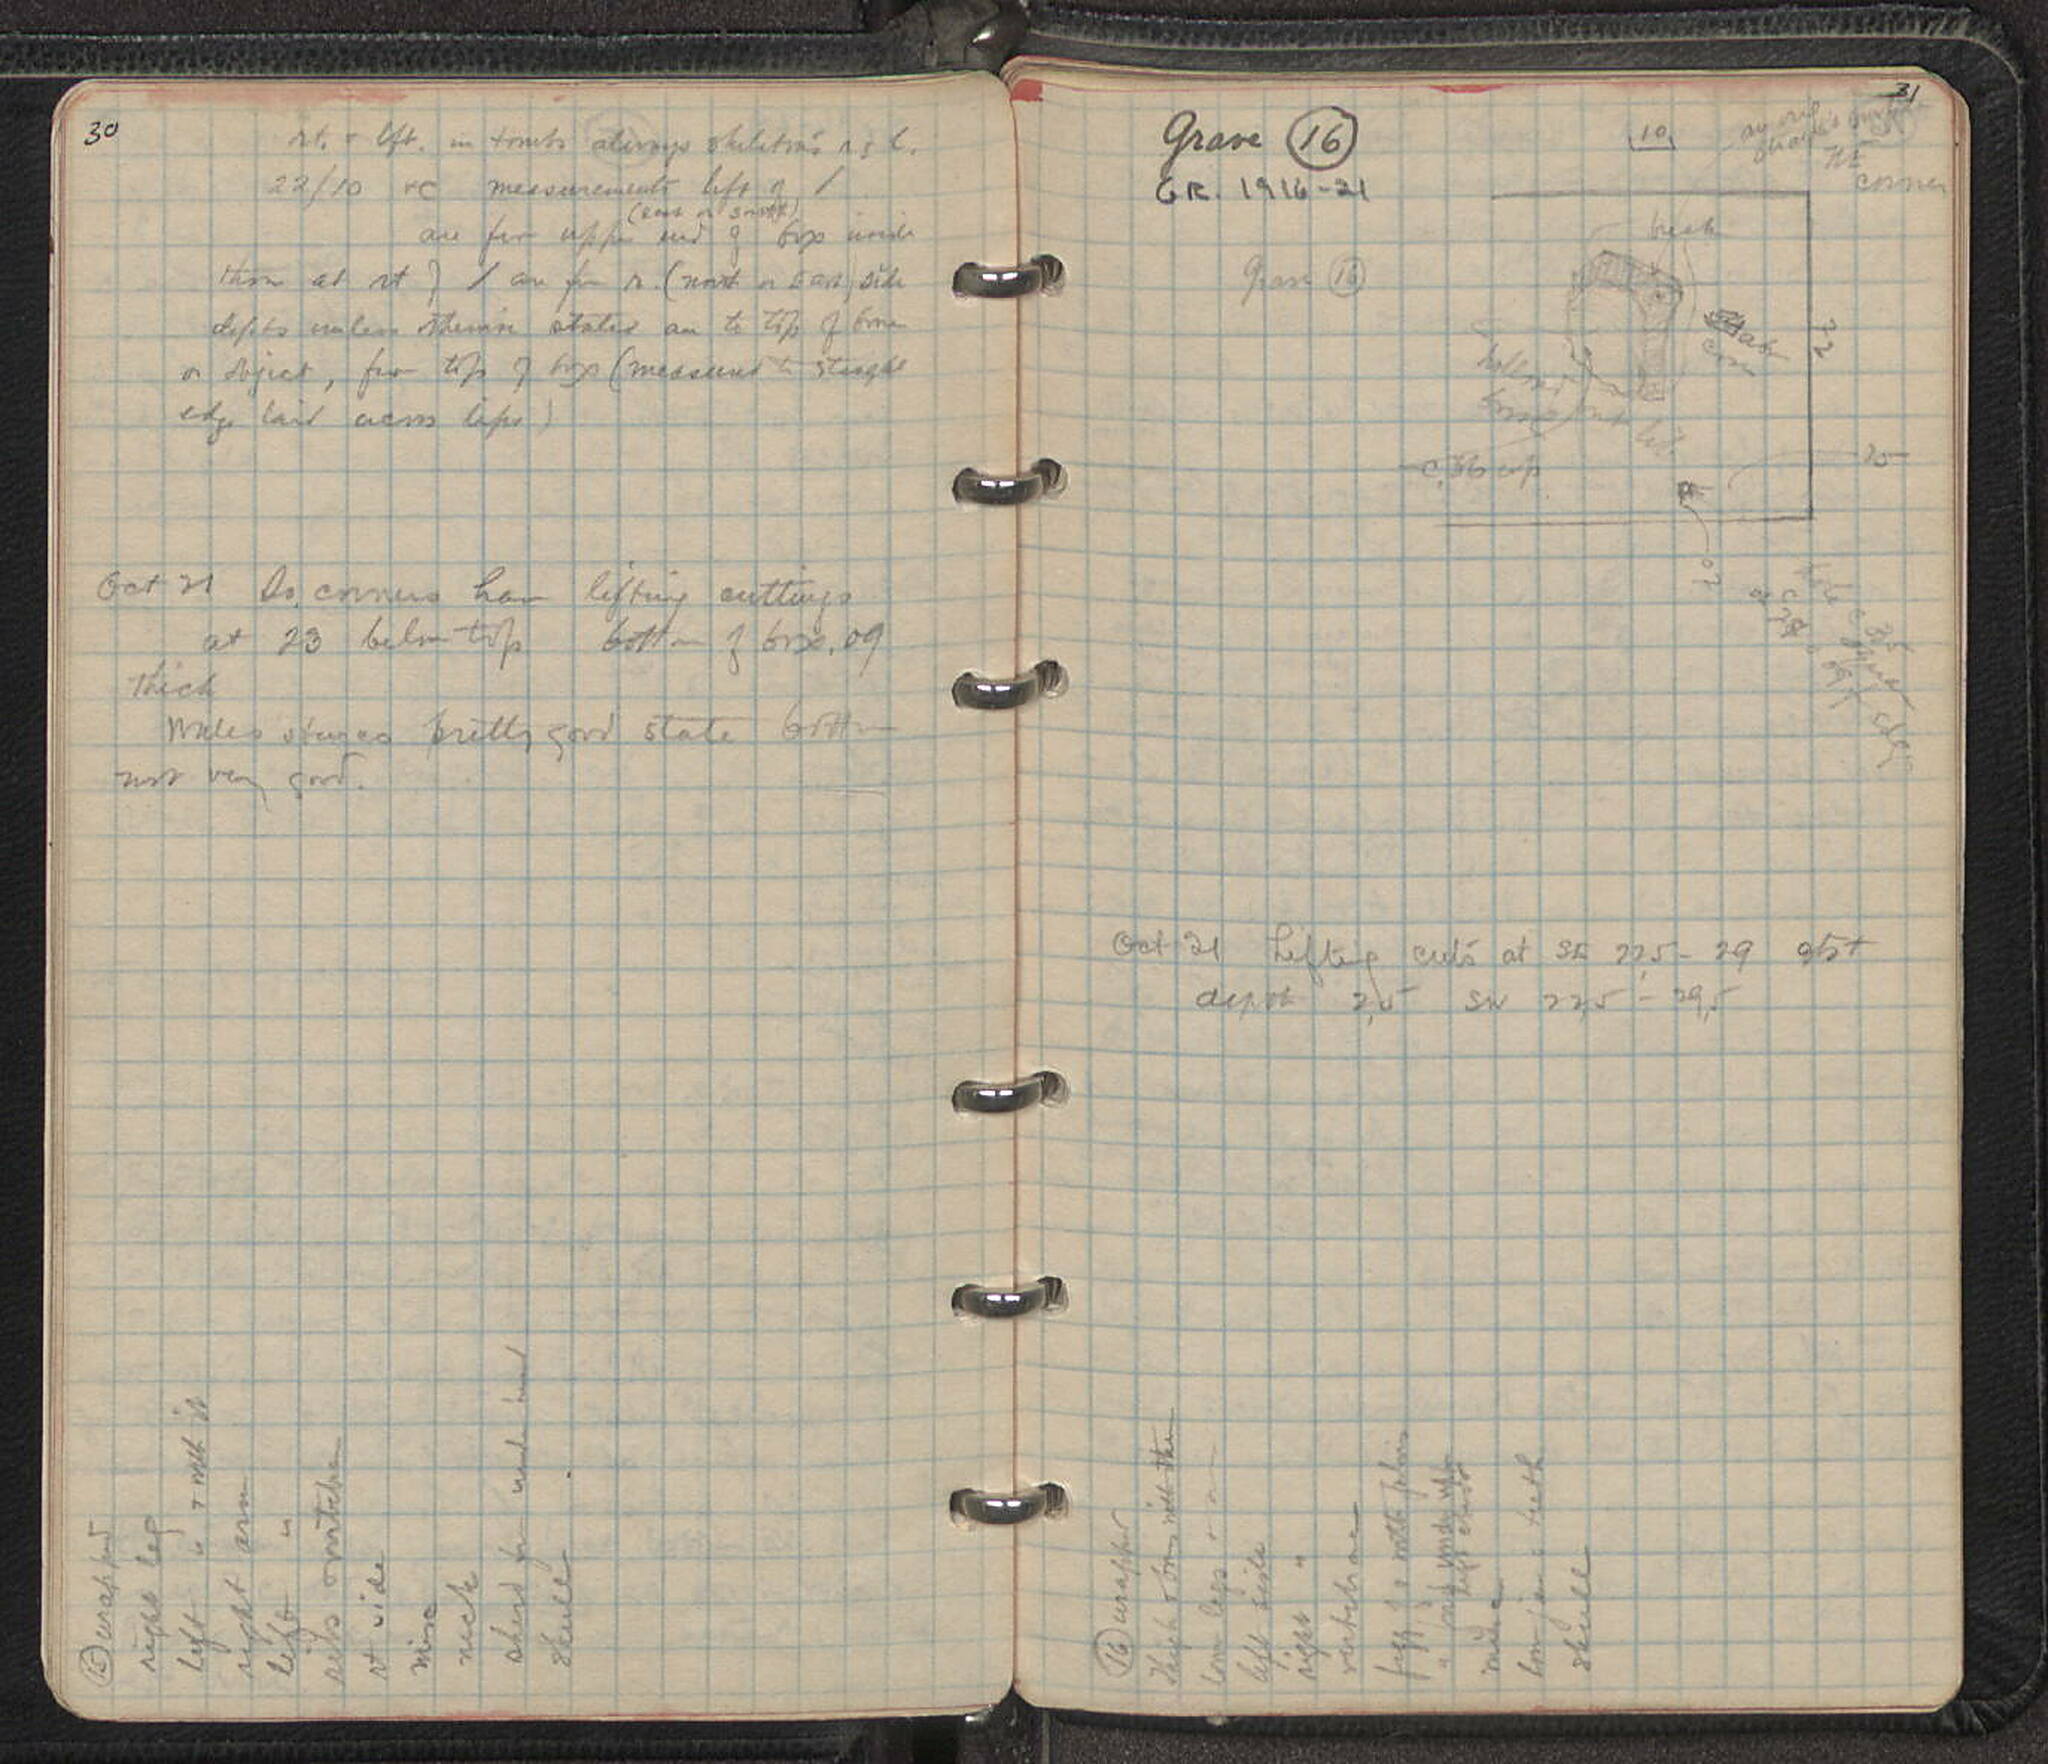 30
rt. + lft. in tombs always skeleton's r & l.
22/10 measurements left of /
(east or south)
are from upper end of box inside
those at rt of / are from r. (north or East) side
depts unless otherwise stated are to top of bone
or object, from top of box (measured to straight
edge laid across lips)
Oct 21 Do. corners have lifting cuttings
at 23 below top bottom of box .09
thick
sides pretty good state bottom
not very good.
15 wrapped
right leg
left " + with it
right arm
left "
ribs + vertebrae
rt side
misc
neck
sherd from under head
skull
31
Grave 16
GR. 1916-21
10
NE
corner
Grave 16
22
cup
25
20
Oct 21 Lifting cuts at SE 22,5 - 29
depth 2,5 SW 22,5 - 29,5
16 wrapped
thigh + bones with them
lower legs
left side
right "
vertebrae
with pelvis
lower jaw + teeth
skull